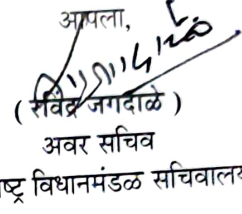 आपला,
( रविंद्र जगदाळे )
अवर सचिव
ष्ट्र विधानमंडळ सचिवालय